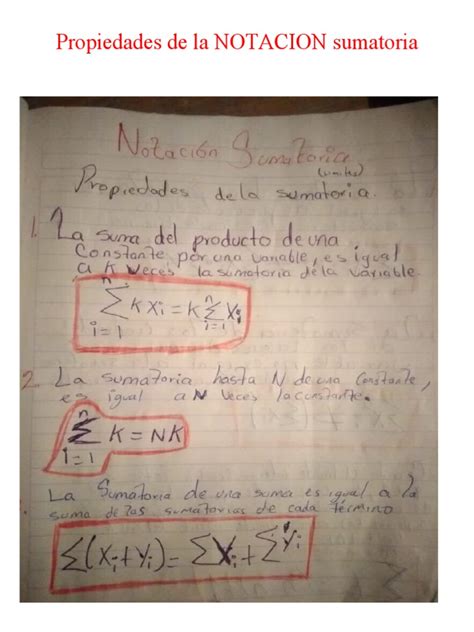 Propiedades de la NOTACION sumatoria
Notación Sumatoria
(limites)
Propiedades de la sumatoria.
1. La suma del producto de una
Constante por una variable, es igual
a K veces la sumatoria de la variable.
n n
∑ K Xi = K ∑ Xi
i=1 i=1
2 La sumatoria hasta N de una Constante,
es igual a N veces la constante.
n
∑ K = NK
i=1
La Sumatoria de una suma es igual a la
suma de las sumatorias de cada término
∑(Xi+Yi)= ∑Xi+∑Yi